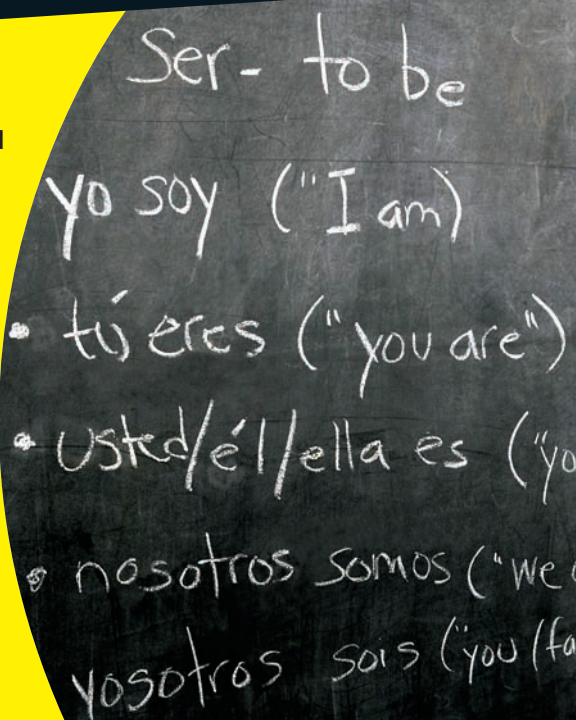 Ser - to be
yo soy ("I am)
• tú eres ("you are")
• usted/él/ella es ("yo
• nosotros somos ("we
yosotros sois ("you (fa